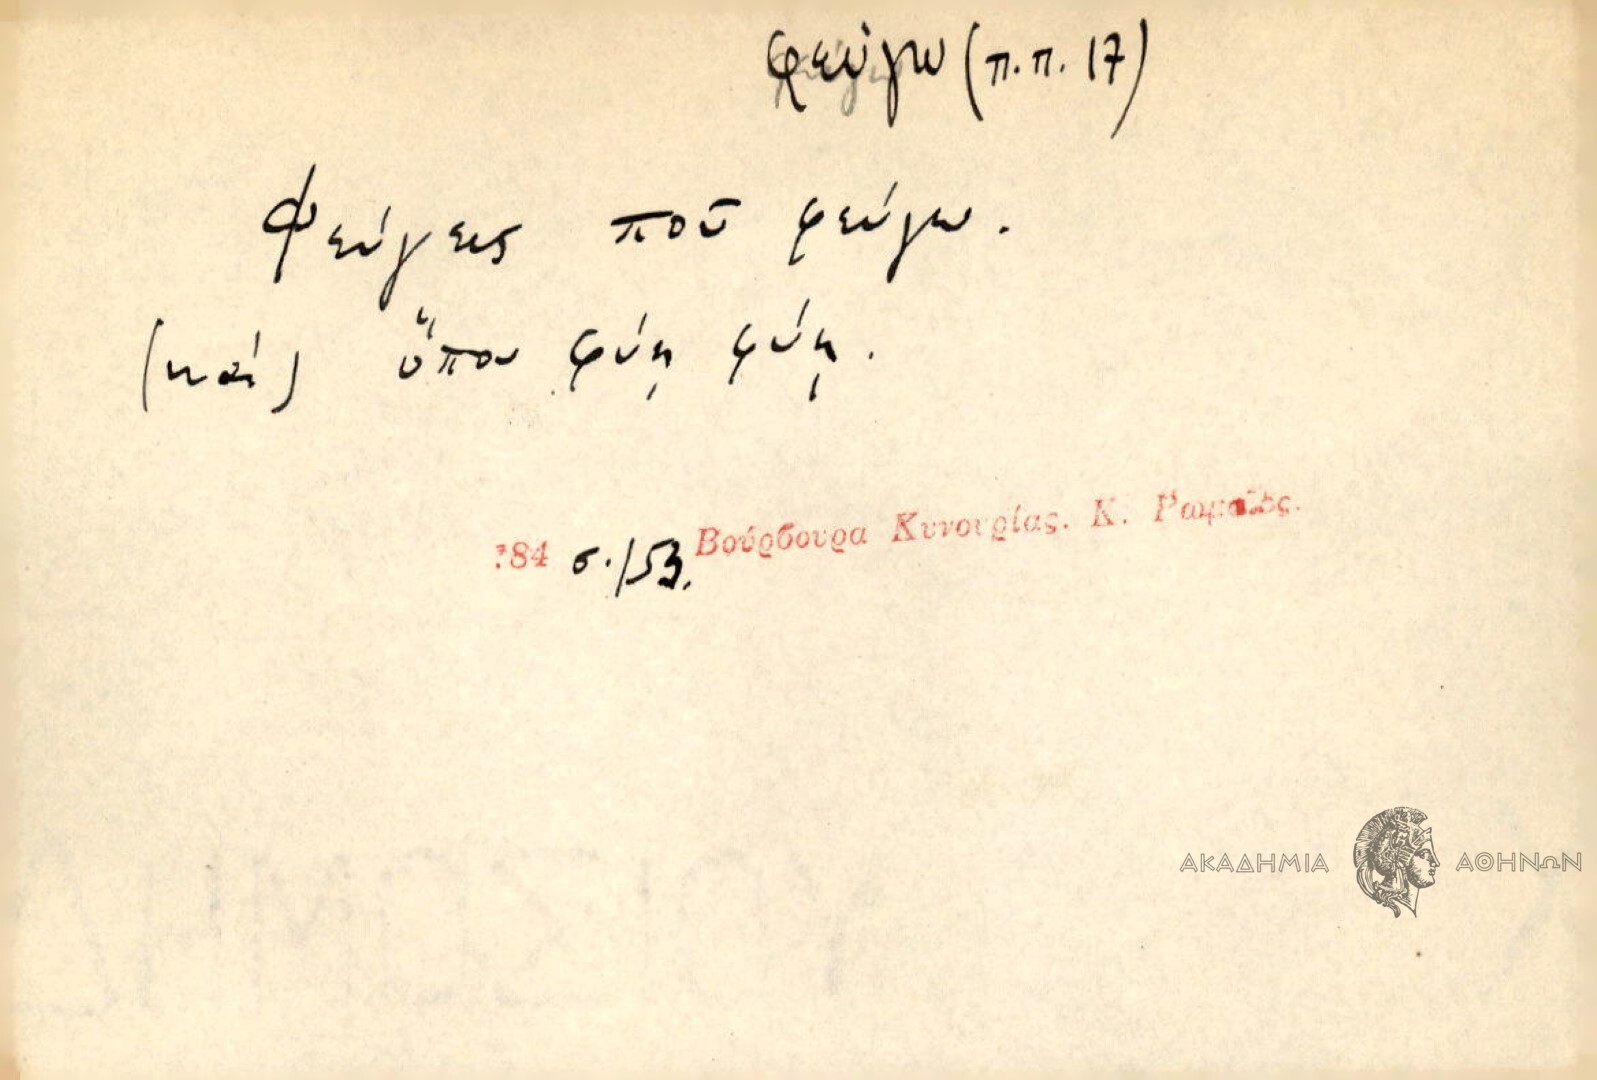 φεύγω (π.π. 17)
Φεύγεις ποῦ φεύγω.
(καὶ) ὅπου φύῃ φύῃ.
784 σ. 153. Βούρβουρα Κυνουρίας. Κ. Ρωμαῖος.
ΑΚΑΔΗΜΙΑ ΑΘΗΝΩΝ